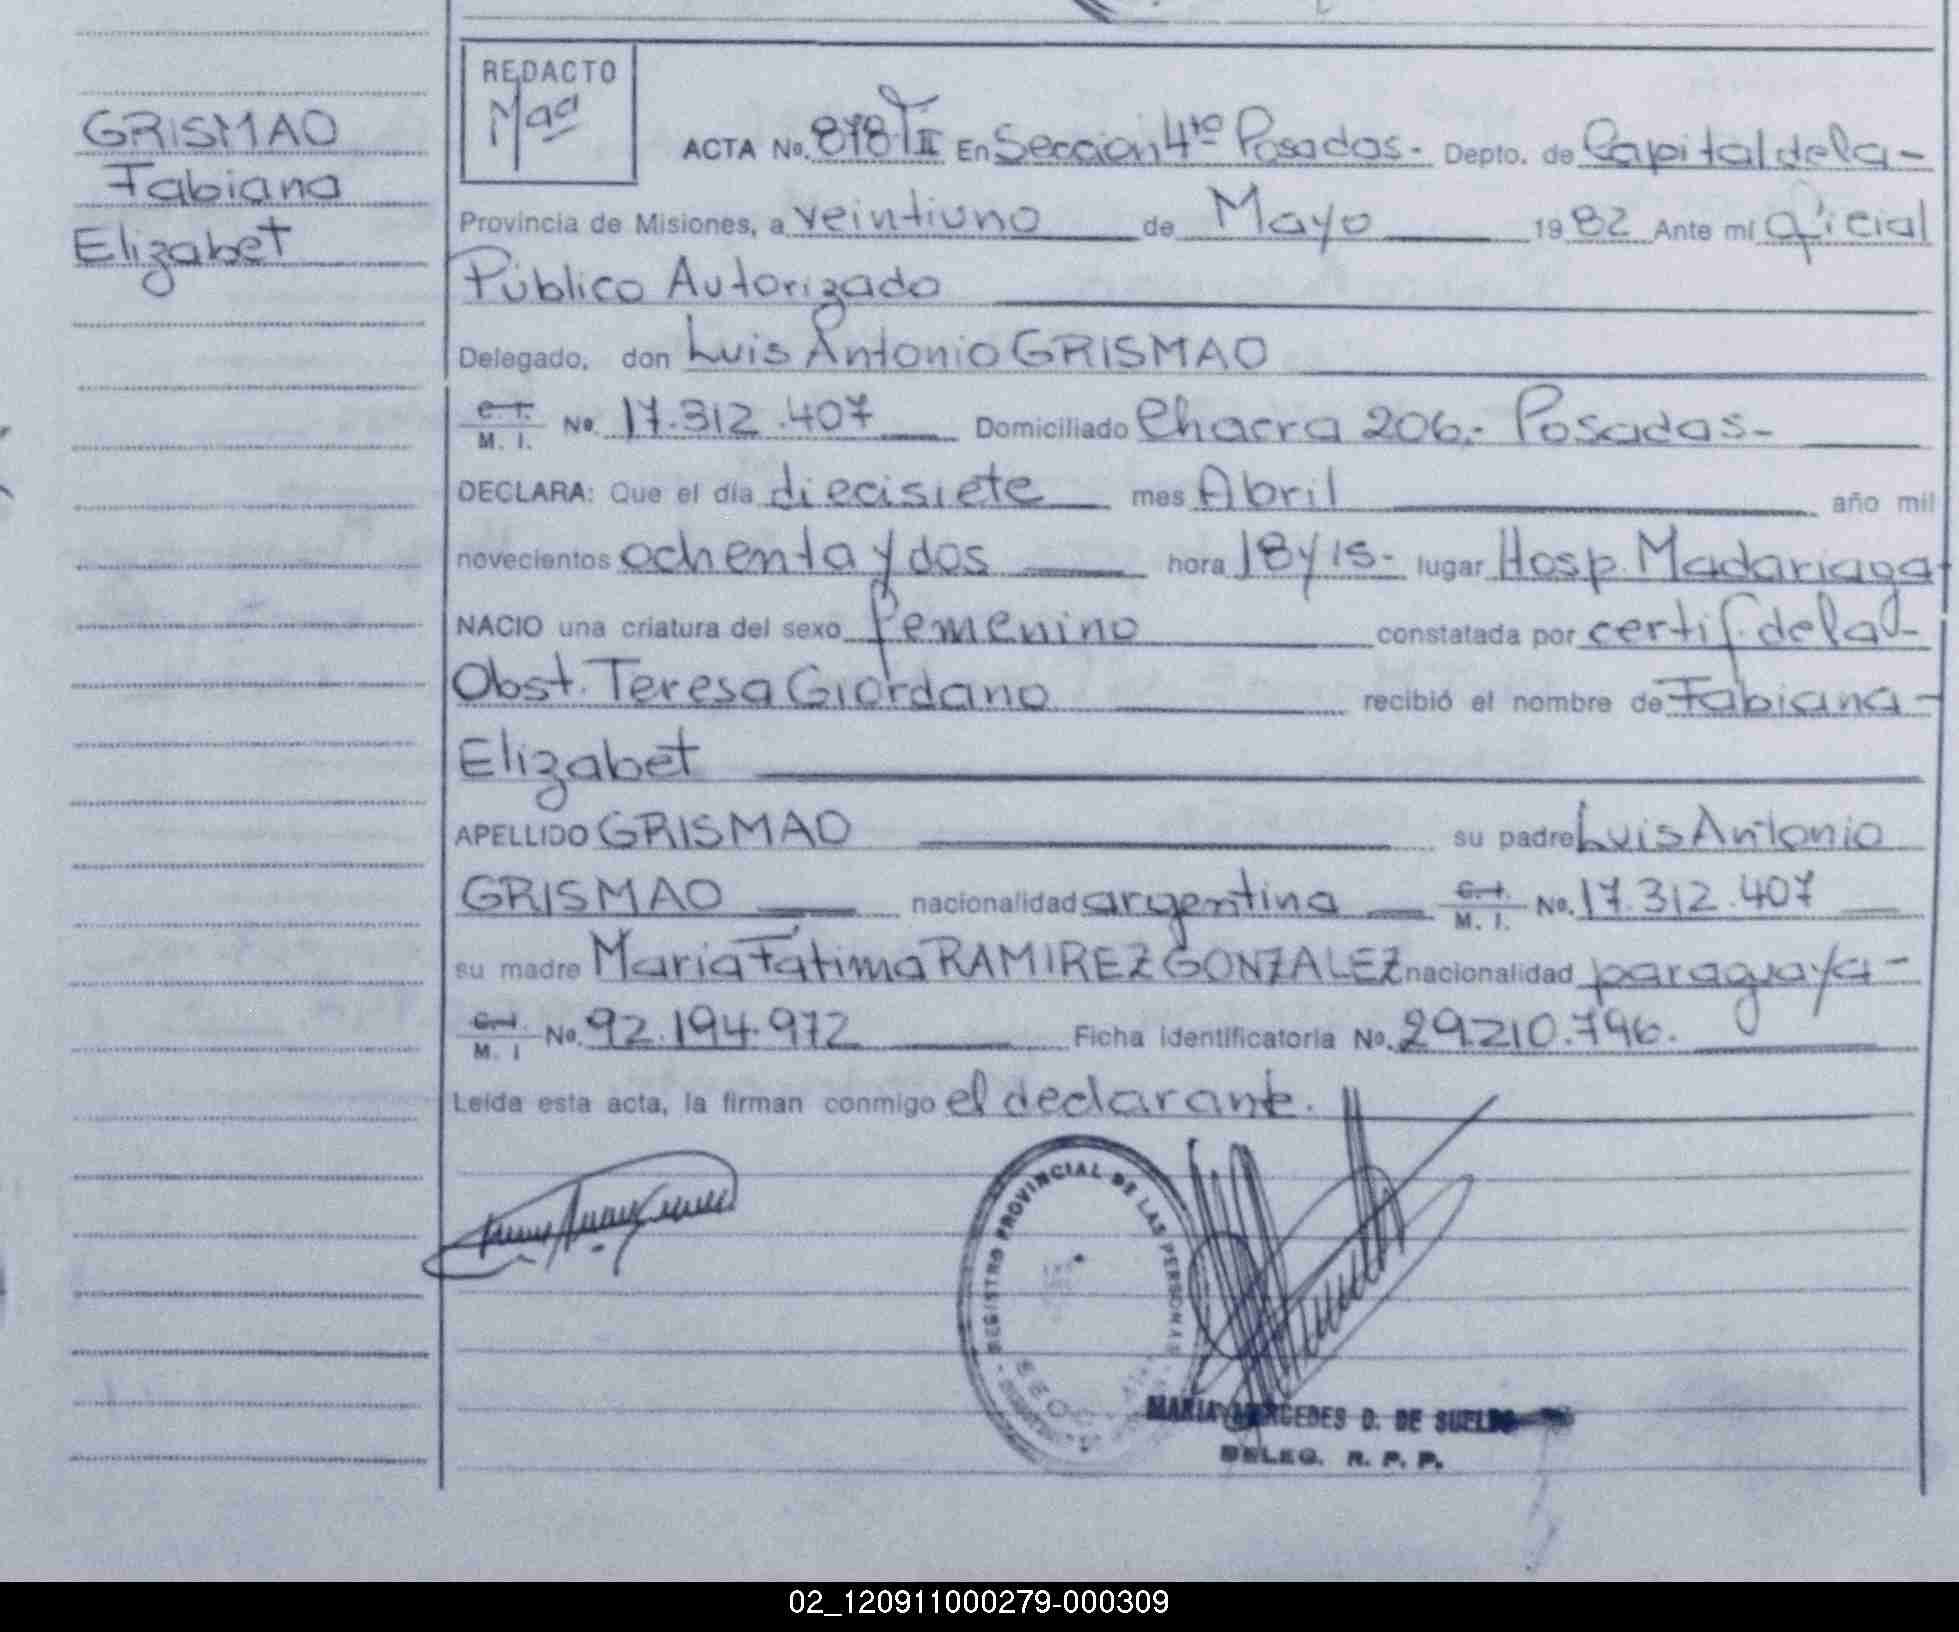 GRISMAO
Fabiana
Elizabet
REDACTO
Mªª
ACTA No. 878 T II En Sección 4ta Posadas.- Depto. de Capital de la -
Provincia de Misiones, a veintiuno de Mayo 1982 Ante mí Oficial
Público Autorizado
Delegado, don Luis Antonio GRISMAO
C. I.
M. I. No. 17.312.407 Domiciliado Chacra 206.- Posadas-
DECLARA: Que el día diecisiete mes Abril año mil
novecientos ochenta y dos hora 18 y 15- lugar Hosp. Madariaga
NACIO una criatura del sexo femenino constatada por certif. de la -
Obst. Teresa Giordano recibió el nombre de Fabiana -
Elizabet
APELLIDO GRISMAO su padre Luis Antonio
GRISMAO nacionalidad argentina C. I. M. I. No. 17.312.407
su madre María Fátima RAMIREZ GONZALEZ nacionalidad paraguaya -
C. I. M. I No. 92.194.972 Ficha identificatoria No. 29.210.796.
Leída esta acta, la firman conmigo el declarante.
REGISTRO PROVINCIAL DE LAS PERSONAS
MARIA MERCEDES D. DE SUELDO
DELEG. R. P. P.
02_120911000279-000309